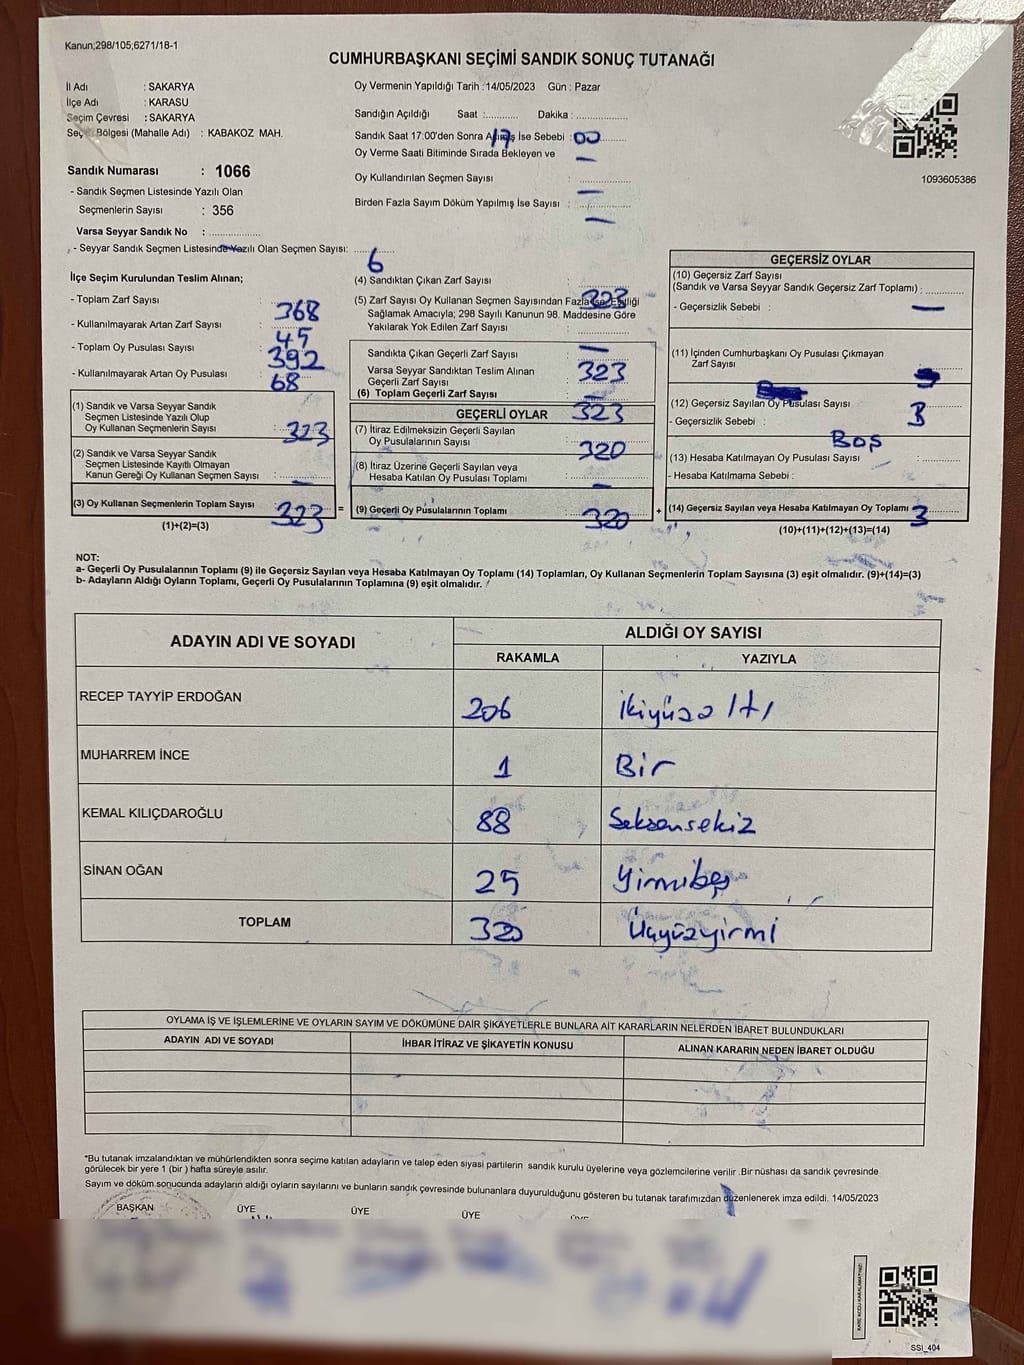 Kanun;298/105;6271/18-1
CUMHURBAŞKANI SEÇİMİ SANDIK SONUÇ TUTANAĞI
İl Adı : SAKARYA
İlçe Adı : KARASU
Seçim Çevresi : SAKARYA
Seç Bölgesi (Mahalle Adı) : KABAKOZ MAH.
Sandık Numarası : 1066
- Sandık Seçmen Listesinde Yazılı Olan
Seçmenlerin Sayısı : 356
Varsa Seyyar Sandık No :
- Seyyar Sandık Seçmen Listesinde Yazılı Olan Seçmen Sayısı: 6
Oy Vermenin Yapıldığı Tarih :14/05/2023 Gün : Pazar
Sandığın Açıldığı Saat : 17 Dakika : 00
Sandık Saat 17:00'den Sonra Açılmış İse Sebebi : —
Oy Verme Saati Bitiminde Sırada Bekleyen ve
Oy Kullandırılan Seçmen Sayısı : —
Birden Fazla Sayım Döküm Yapılmış İse Sayısı : —
1093605386
İlçe Seçim Kurulundan Teslim Alınan;
- Toplam Zarf Sayısı : 368
- Kullanılmayarak Artan Zarf Sayısı : 45
- Toplam Oy Pusulası Sayısı : 392
- Kullanılmayarak Artan Oy Pusulası : 68
(1) Sandık ve Varsa Seyyar Sandık
Seçmen Listesinde Yazılı Olup
Oy Kullanan Seçmenlerin Sayısı : 323
(2) Sandık ve Varsa Seyyar Sandık
Seçmen Listesinde Kayıtlı Olmayan
Kanun Gereği Oy Kullanan Seçmen Sayısı : —
(3) Oy Kullanan Seçmenlerin Toplam Sayısı : 323 =
(1)+(2)=(3)
(4) Sandıktan Çıkan Zarf Sayısı : 323
(5) Zarf Sayısı Oy Kullanan Seçmen Sayısından Fazla İse, Eşitliği
Sağlamak Amacıyla; 298 Sayılı Kanunun 98. Maddesine Göre
Yakılarak Yok Edilen Zarf Sayısı : —
Sandıkta Çıkan Geçerli Zarf Sayısı : 323
Varsa Seyyar Sandıktan Teslim Alınan
Geçerli Zarf Sayısı : —
(6) Toplam Geçerli Zarf Sayısı : 323
GEÇERLİ OYLAR
(7) İtiraz Edilmeksizin Geçerli Sayılan
Oy Pusulalarının Sayısı : 320
(8) İtiraz Üzerine Geçerli Sayılan veya
Hesaba Katılan Oy Pusulası Toplamı : —
(9) Geçerli Oy Pusulalarının Toplamı : 320 +
GEÇERSİZ OYLAR
(10) Geçersiz Zarf Sayısı
(Sandık ve Varsa Seyyar Sandık Geçersiz Zarf Toplamı) : —
- Geçersizlik Sebebi :
(11) İçinden Cumhurbaşkanı Oy Pusulası Çıkmayan
Zarf Sayısı :
(12) Geçersiz Sayılan Oy Pusulası Sayısı : 3
- Geçersizlik Sebebi : Boş
(13) Hesaba Katılmayan Oy Pusulası Sayısı :
- Hesaba Katılmama Sebebi :
(14) Geçersiz Sayılan veya Hesaba Katılmayan Oy Toplamı : 3
(10)+(11)+(12)+(13)=(14)
NOT:
a- Geçerli Oy Pusulalarının Toplamı (9) ile Geçersiz Sayılan veya Hesaba Katılmayan Oy Toplamı (14) Toplamları, Oy Kullanan Seçmenlerin Toplam Sayısına (3) eşit olmalıdır. (9)+(14)=(3)
b- Adayların Aldığı Oyların Toplamı, Geçerli Oy Pusulalarının Toplamına (9) eşit olmalıdır.
ADAYIN ADI VE SOYADI
ALDIĞI OY SAYISI
RAKAMLA YAZIYLA
RECEP TAYYİP ERDOĞAN 206 ikiyüzaltı
MUHARREM İNCE 1 Bir
KEMAL KILIÇDAROĞLU 88 Seksensekiz
SİNAN OĞAN 25 Yirmibeş
TOPLAM 320 Üçyüzyirmi
OYLAMA İŞ VE İŞLEMLERİNE VE OYLARIN SAYIM VE DÖKÜMÜNE DAİR ŞİKAYETLERLE BUNLARA AİT KARARLARIN NELERDEN İBARET BULUNDUKLARI
ADAYIN ADI VE SOYADI İHBAR İTİRAZ VE ŞİKAYETİN KONUSU ALINAN KARARIN NEDEN İBARET OLDUĞU
*Bu tutanak imzalandıktan ve mühürlendikten sonra seçime katılan adayların ve talep eden siyasi partilerin sandık kurulu üyelerine veya gözlemcilerine verilir .Bir nüshası da sandık çevresinde
görülecek bir yere 1 (bir ) hafta süreyle asılır.
Sayım ve döküm sonucunda adayların aldığı oyların sayılarını ve bunların sandık çevresinde bulunanlara duyurulduğunu gösteren bu tutanak tarafımızdan düzenlenerek imza edildi. 14/05/2023
BAŞKAN ÜYE ÜYE ÜYE ÜYE
SSI_404